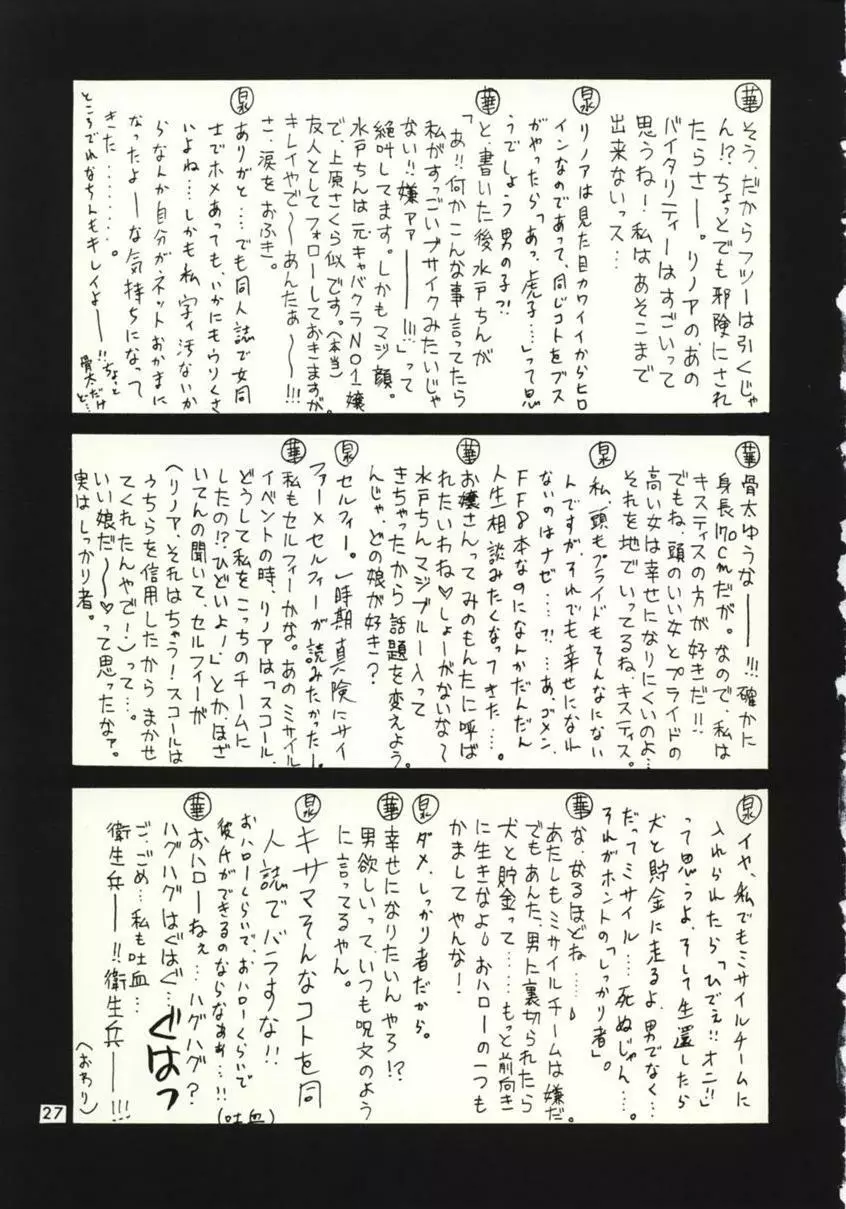 華 そう、だからフツーは引くじゃ
ん!?ちょっとでも邪険にされ
たらさー。リノアのあの
バイタリティーはすごいって
思うね!私はあそこまで
出来ないっス…
泉 リノアは見た目カワイイからヒロ
インなのであって、同じコトをブス
がやったら「あっ、虎子…」って思
うでしょう男の子?!
華 と、書いた後水戸ちんが
「あ!!何かこんな事言ってたら
私がすっごいブサイクみたいじゃ
ない!!嫌ァァ――!!!」って
絶叫してます。しかもマジ顔。
水戸ちんは元キャバクラNO1嬢
で、上原さくら似です。(本当)
友人としてフォローしておきますが、
キレイやで〜〜あんたぁ〜〜!!!
さ、涙をおふき。
泉 ありがと…でも同人誌で女同
士でホメあっても、いかにもウリくさ
いよね…しかも私、字ィ汚ないか
らなんか自分がネットおかまに
なったよーな気持ちになって
きた………。
ところでれなちんもキレイよ――!!ちょっと
骨太だけ
ど…
華 骨太ゆうな――!!!確かに
身長170cmだが。なので、私は
キスティスの方が好きだ!!
でもね、頭のいい女とプライドの
高い女は幸せになりにくいのよ…
それを地でいってるね、キスティス。
泉 私、頭もプライドもそんなにない
んですが、それでも幸せになれ
ないのはナゼ…?!…あ、ゴメン、
FF8本なのになんかだんだん
人生相談みたくなってきた…。
華 お嬢さんってみのもんたに呼ば
れたいわね♡しょーがないな〜
水戸ちんマジブルー入って
きちゃったから話題を変えよう。
んじゃ、どの娘が好き?
泉 セルフィー。一時期真険にサイ
ファー×セルフィーが読みたかったー。
華 私もセルフィーかな。あのミサイル
イベントの時、リノアは「スコール、
どうして私をこっちのチームに
したの!?ひどいよ!」とか、ほざ
いてんの聞いて、セルフィーが
(リノア、それはちゃう!スコールは
うちらを信用したからまかせ
てくれたんやで!)って…。
いい娘だ〜〜♡って思ったなァ。
実はしっかり者。
泉 イヤ、私でもミサイルチームに
入れられたら「ひでぇ!!オニ!!」
って思うよ、そして生還したら
犬と貯金に走るよ、男でなく…
だってミサイル…死ぬじゃん…。
それがホントの「しっかり者」。
華 な、なるほどね…
あたしもミサイルチームは嫌だ。
でもあんた、男に裏切られたら
犬と貯金って……もっと前向き
に生きなよ おハローの一つも
かましてやんな!
泉 ダメ、しっかり者だから。
華 幸せになりたいんやろ!?
男欲しいって、いつも呪文のよう
に言ってるやん。
泉 キサマそんなコトを同
人誌でバラすな!!
おハローくらいで、おハローくらいで
彼氏ができるのならなぁぁ…!!
(吐血)
華 おハローねぇ…ハグハグ?
ハグハグはぐはぐ…ぐはっ
ご、ごめ…私も吐血…
衛生兵――!!衛生兵――!!!
(おわり)
27